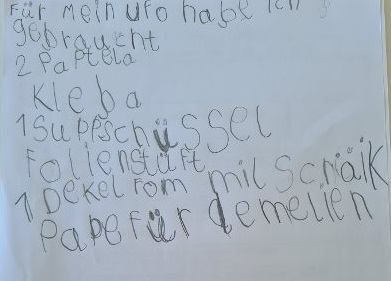 Für mein ufo habe ich
gebraucht
2 Paptela
Kleba
1 Suppschüssel
Folienstift
1 Dekel fom milschäik
Pape für de mellen